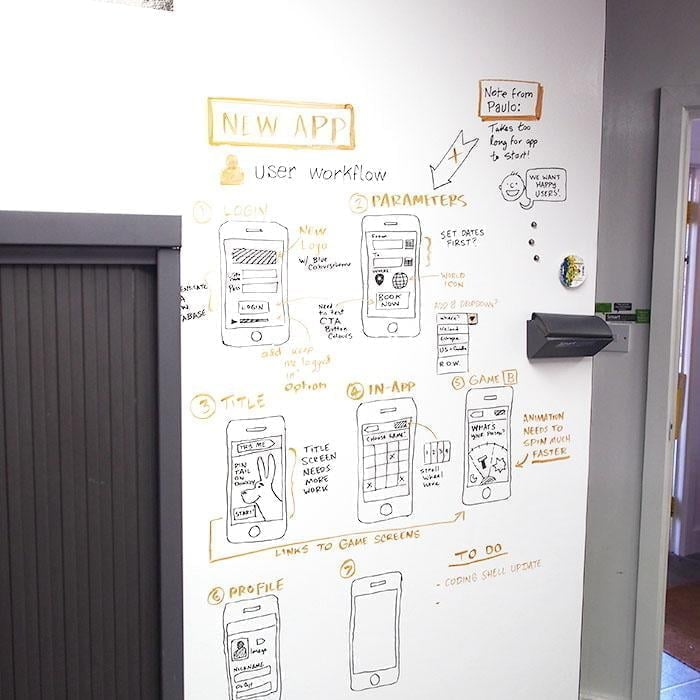 NEW APP
User workflow
Note from
Paulo:
Takes too
long for app
to start!
WE WANT
HAPPY
USERS!
① LOGIN
NEW
LOGO
W/ Blue
Colourscheme
Pass
LOGIN
add keep
me logged
in
option
Need
to test
CTA
Button
Colours
② PARAMETERS
From
To
WHERE
BOOK
NOW
SET DATES
FIRST?
WORLD
ICON
ADD DROPDOWN?
Where?
Ireland
Europe
R.O.W.
③ TITLE
THIS ME
PIN
TAIL
ON
DONKEY
START
TITLE
SCREEN
NEEDS
MORE
WORK
④ IN-APP
CHOOSE GAME
X
X
1 2 3 4
Scroll
Wheel
here
⑤ GAME B
WHATS
YOUR
ANIMATION
NEEDS TO
SPIN MUCH
FASTER
LINKS TO GAME SCREENS
TO DO
- CODING SHELL UPDATE
-
⑥ PROFILE
Image
NICKNAME
⑦
Smart